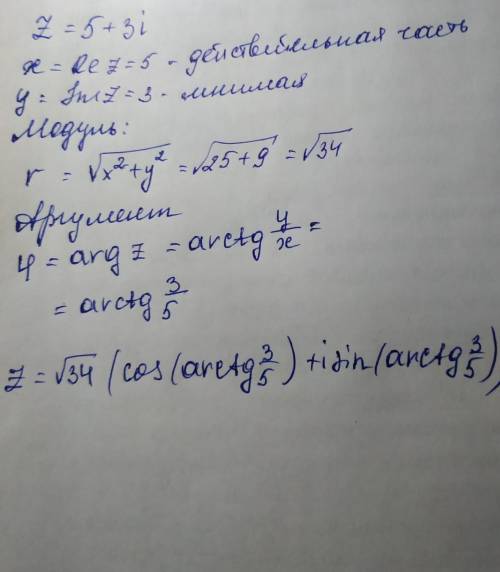 Z = 5 + 3i
x = Re z = 5 - действительная часть
y = Im Z = 3 - мнимая
Модуль:
r = √x²+y² = √25+9 = √34
Аргумент
φ = arg z = arctg y/x =
= arctg 3/5
Z = √34 (cos(arctg 3/5) + i sin(arctg 3/5)